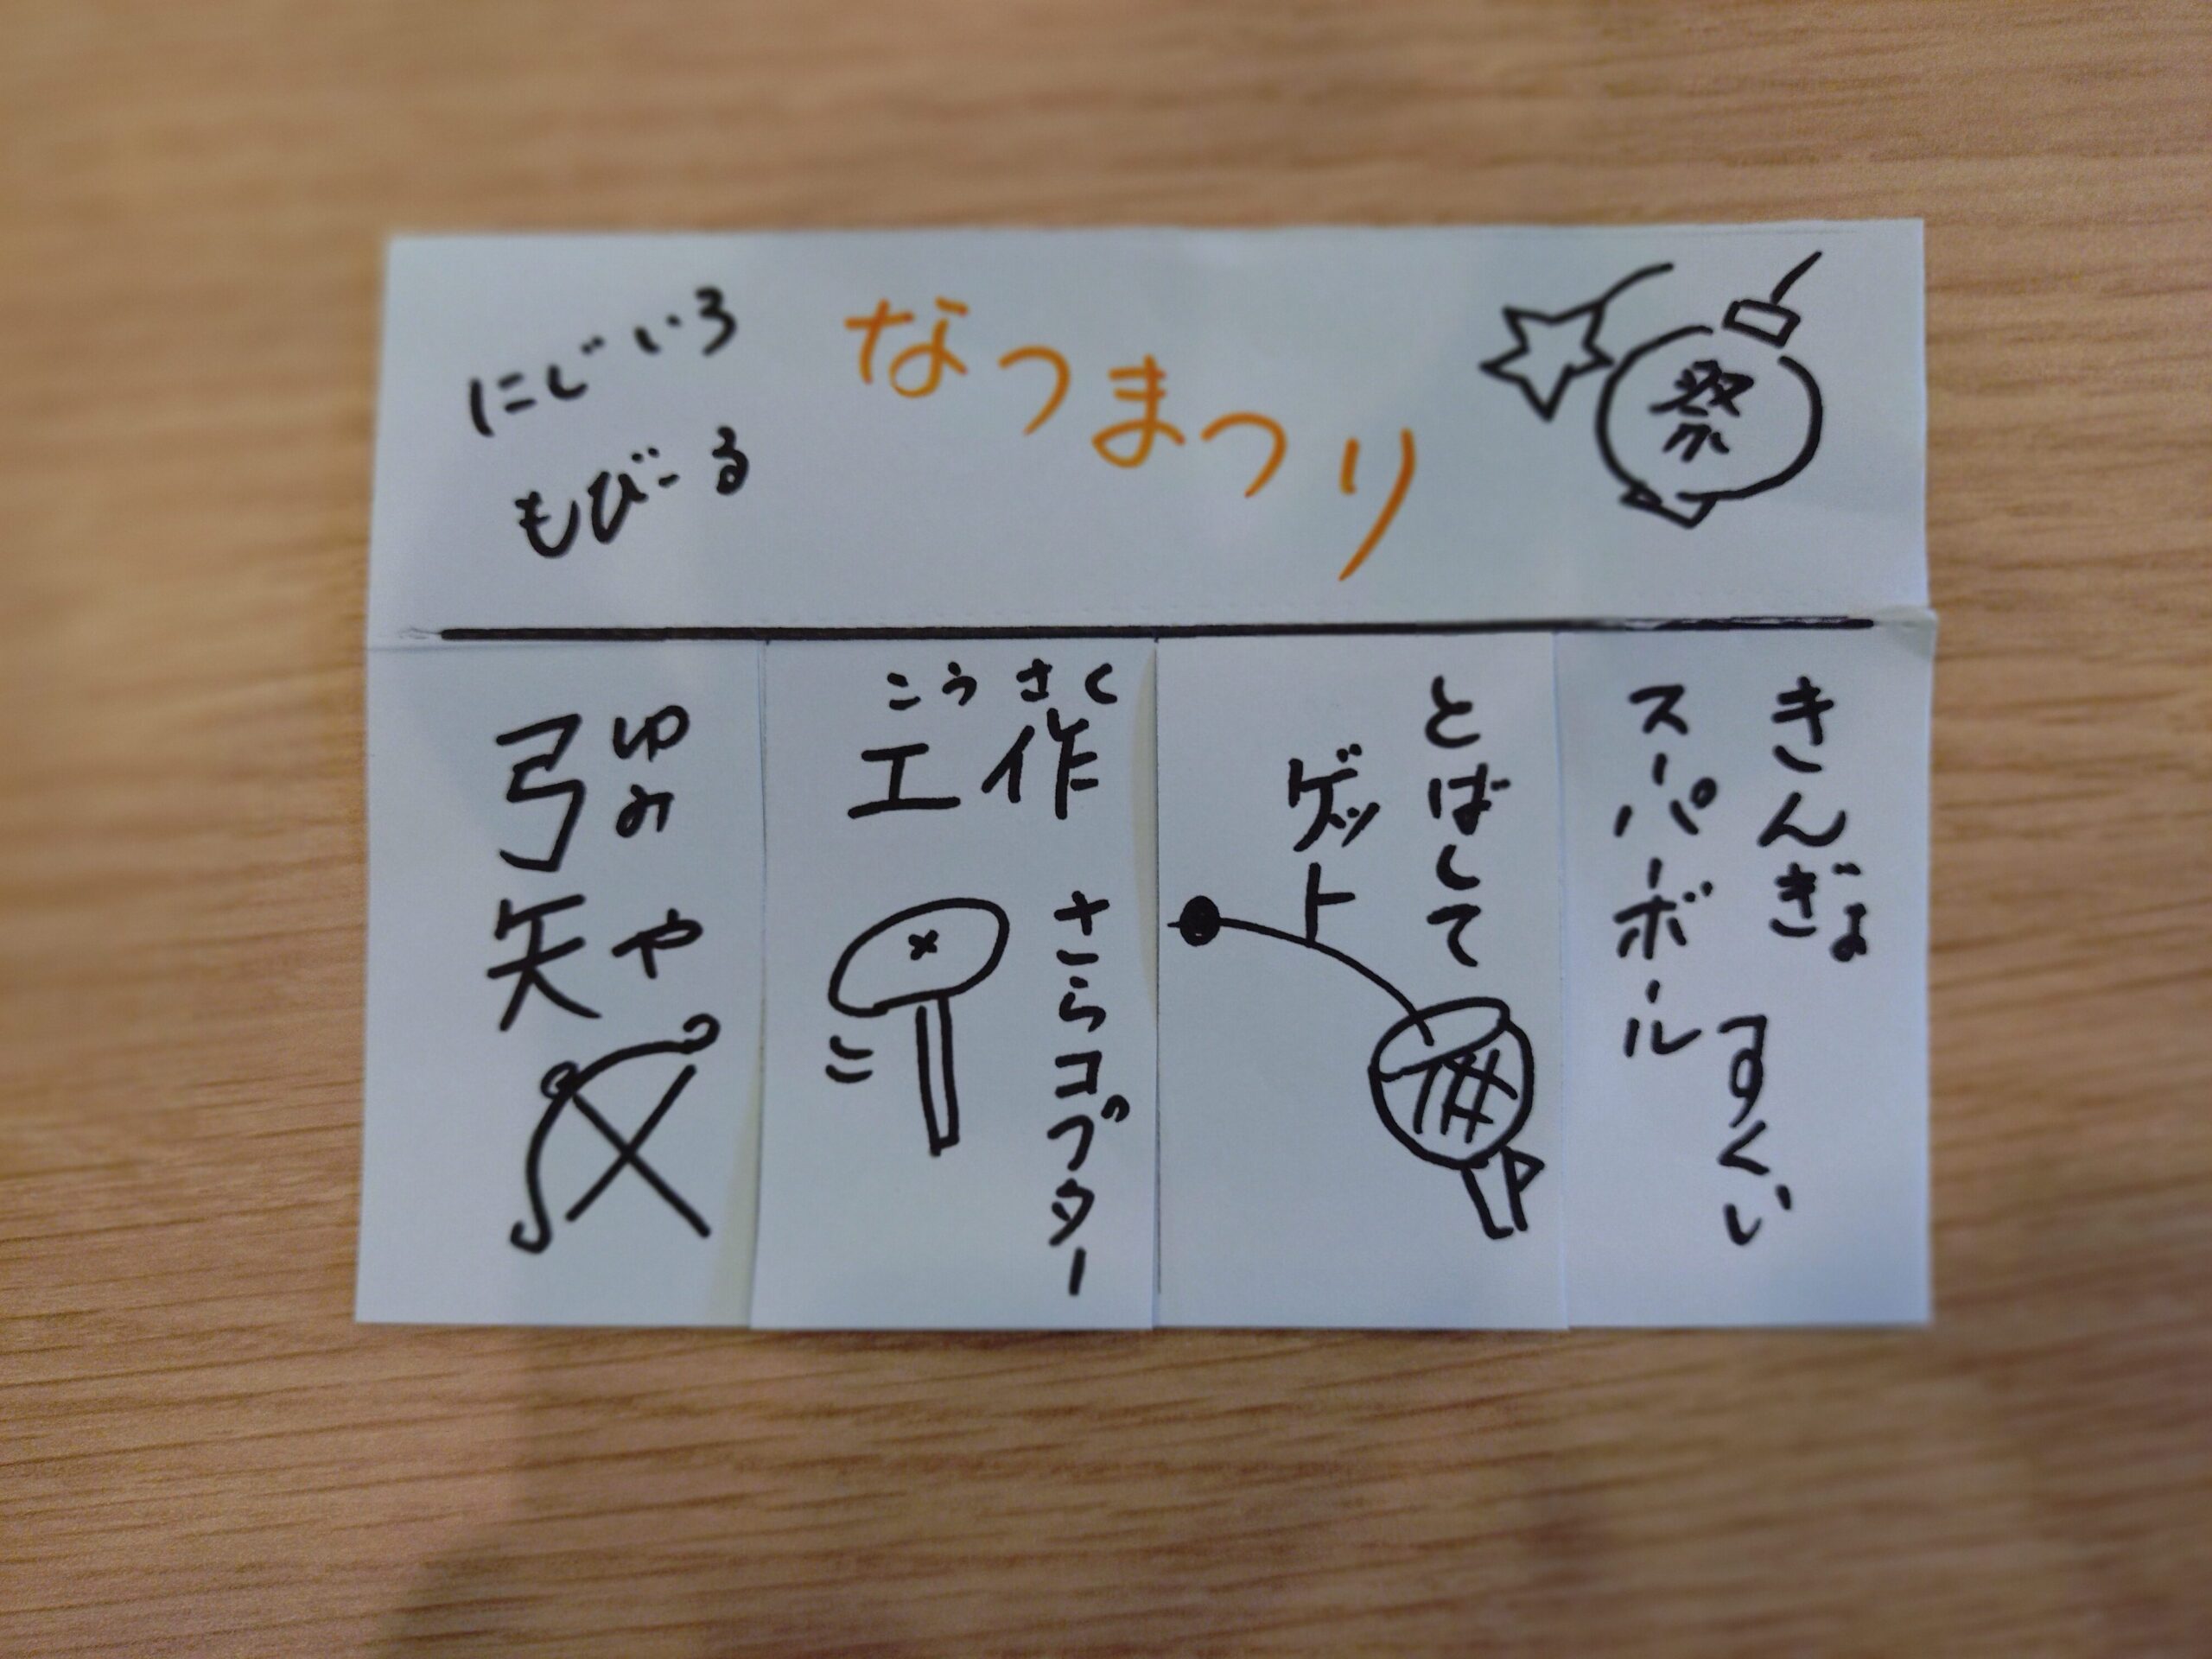 にじいろ
もびーる
なつまつり
祭
きんぎょ
スーパーボール
すくい
とばして
ゲット
こうさく
工作
さらコプター
ゆみや
弓矢